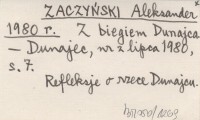 ZACZYŃSKI Aleksander x
1980 r. Z biegiem Dunajca
– Dunajec, nr z lipca 1980,
s. 7.
Refleksje o rzece Dunajcu.